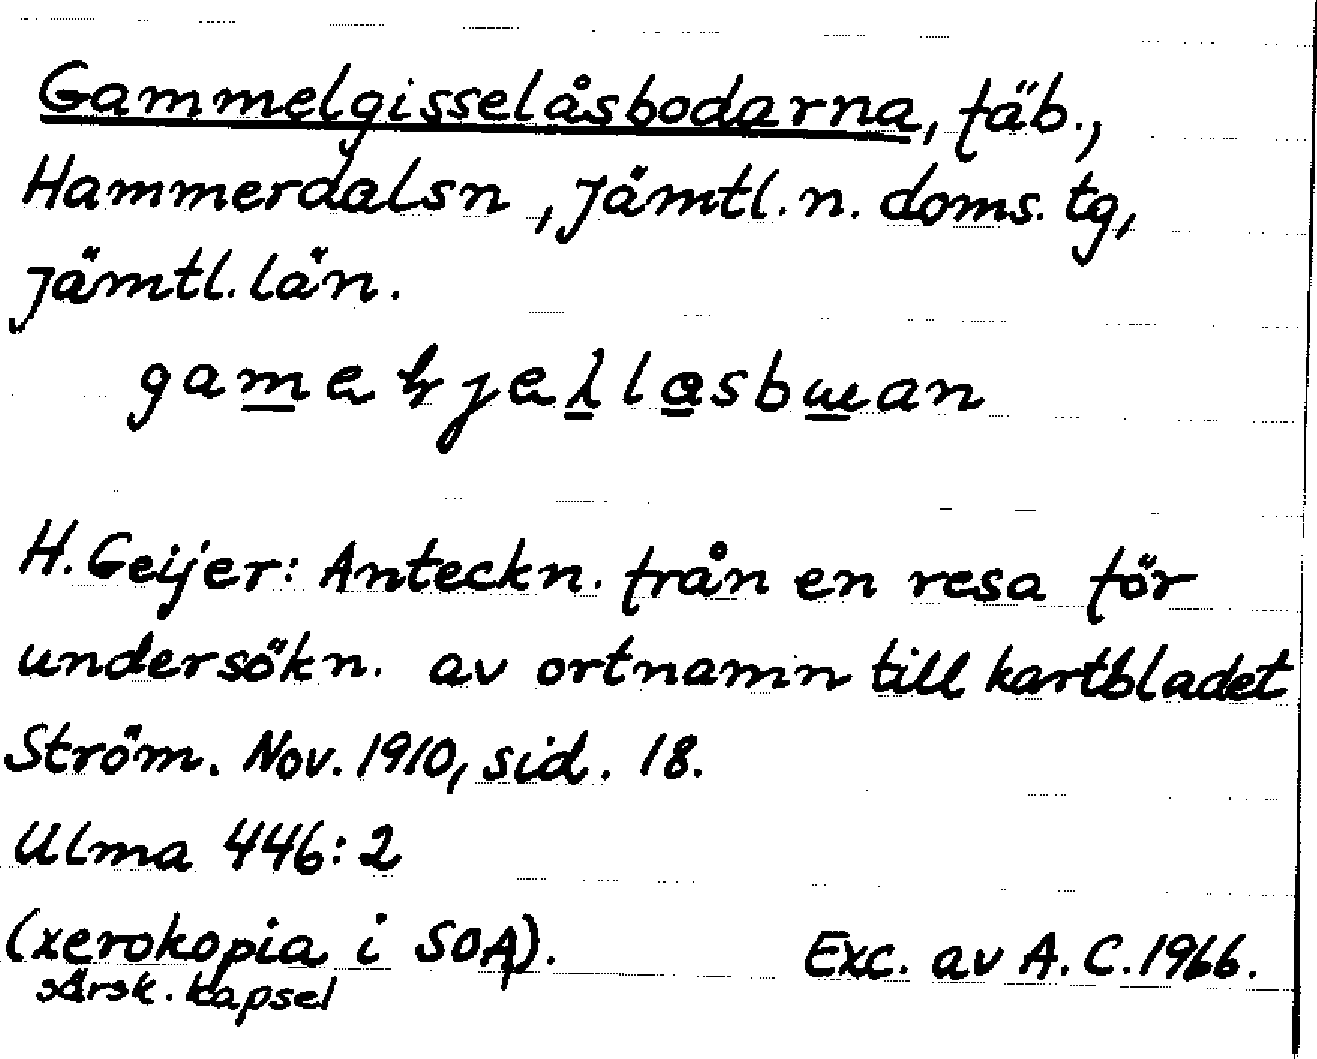 Gammelgisselåsbodarna, fäb.,
Hammerdalsn, Jämtl. n. doms. tg,
Jämtl. län.
H. Geijer: Anteckn. från en resa för
undersökn. av ortnamn till kartbladet
Ström. Nov. 1910, sid. 18.
Ulma 446:2
(xerokopia i SOA). Exc. av A. C. 1966.
särsk. kapsel